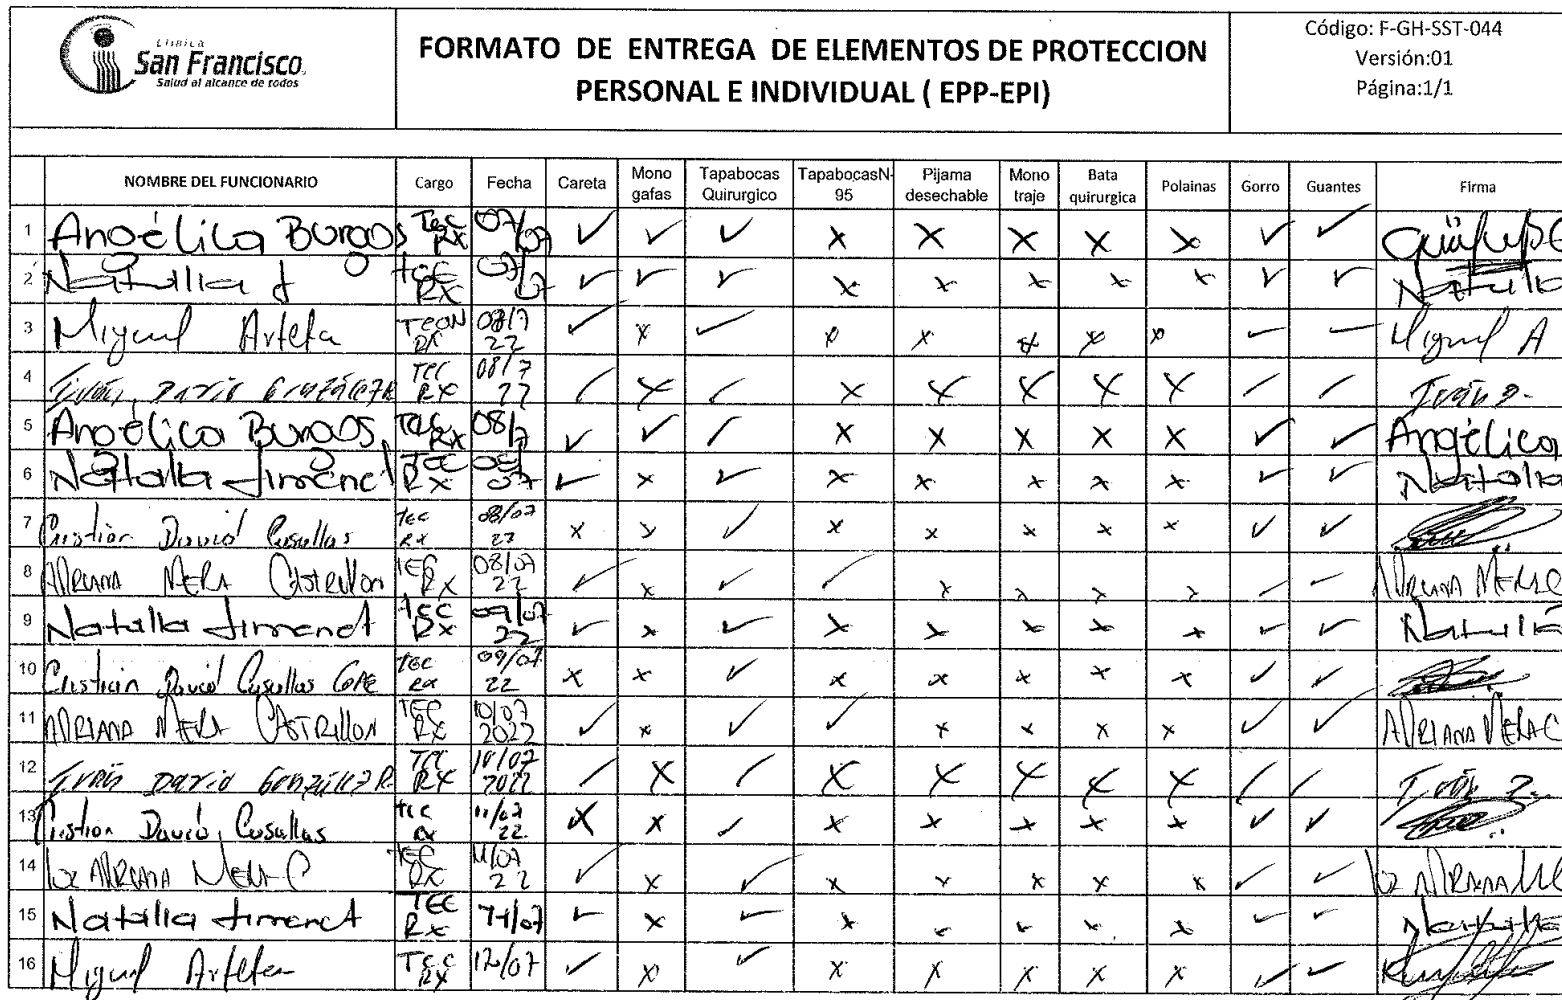 Clínica
San Francisco.
Salud al alcance de todos
FORMATO DE ENTREGA DE ELEMENTOS DE PROTECCION
PERSONAL E INDIVIDUAL ( EPP-EPI)
Código: F-GH-SST-044
Versión:01
Página:1/1
NOMBRE DEL FUNCIONARIO Cargo Fecha Careta Mono gafas Tapabocas Quirurgico TapabocasN-95 Pijama desechable Mono traje Bata quirurgica Polainas Gorro Guantes Firma
1 Angélica Burgos Tec RX 07/07 ✓ ✓ ✓ x x x x x ✓ ✓
2 Natalia J Tec RX 07/07 ✓ ✓ ✓ x x x x x ✓ ✓ Natalia
3 Miguel Arteta Tecn RX 08/7 22 ✓ x ✓ x x x x x ✓ ✓ Miguel A
4 Iván Darío González R Tec RX 08/7 22 ✓ x ✓ x x x x x ✓ ✓ Iván
5 Angélica Burgos Tec RX 08/7 ✓ ✓ ✓ x x x x x ✓ ✓ Angélica
6 Natalia Jimenez Tec RX 08/07 ✓ x ✓ x x x x x ✓ ✓ Natalia
7 Cristian David Casallas Tec RX 08/07 22 x x ✓ x x x x x ✓ ✓
8 ADRIANA MERA CASTRILLON TEC RX 08/07 22 ✓ x ✓ ✓ x x x x ✓ ✓ ADRIANA MERA C
9 Natalia Jimenez Tec RX 09/07 22 ✓ x ✓ x x x x x ✓ ✓ Natalia
10 Cristian David Casallas Tec RX 09/07 22 x x ✓ x x x x x ✓ ✓
11 ADRIANA MERA CASTRILLON TEC RX 10/07 2022 ✓ x ✓ ✓ x x x x ✓ ✓ ADRIANA MERA C
12 Iván Darío González R. Tec RX 10/07 2022 ✓ x ✓ x x x x x ✓ ✓ Iván
13 Cristian David Casallas Tec RX 11/07 22 x x ✓ x x x x x ✓ ✓
14 Luz ADRIANA MERA C TEC RX 11/07 22 ✓ x ✓ x x x x x ✓ ✓ Luz ADRIANA
15 Natalia Jimenez TEC RX 11/07 ✓ x ✓ x ✓ ✓ x x ✓ ✓ Natalia
16 Miguel Arteta Tec RX 12/07 ✓ x ✓ x x x x x ✓ ✓